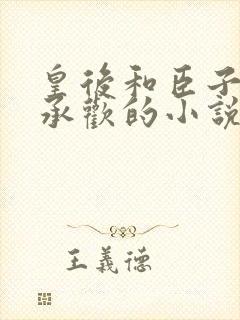 皇後和臣子
承歡的小說
王義德